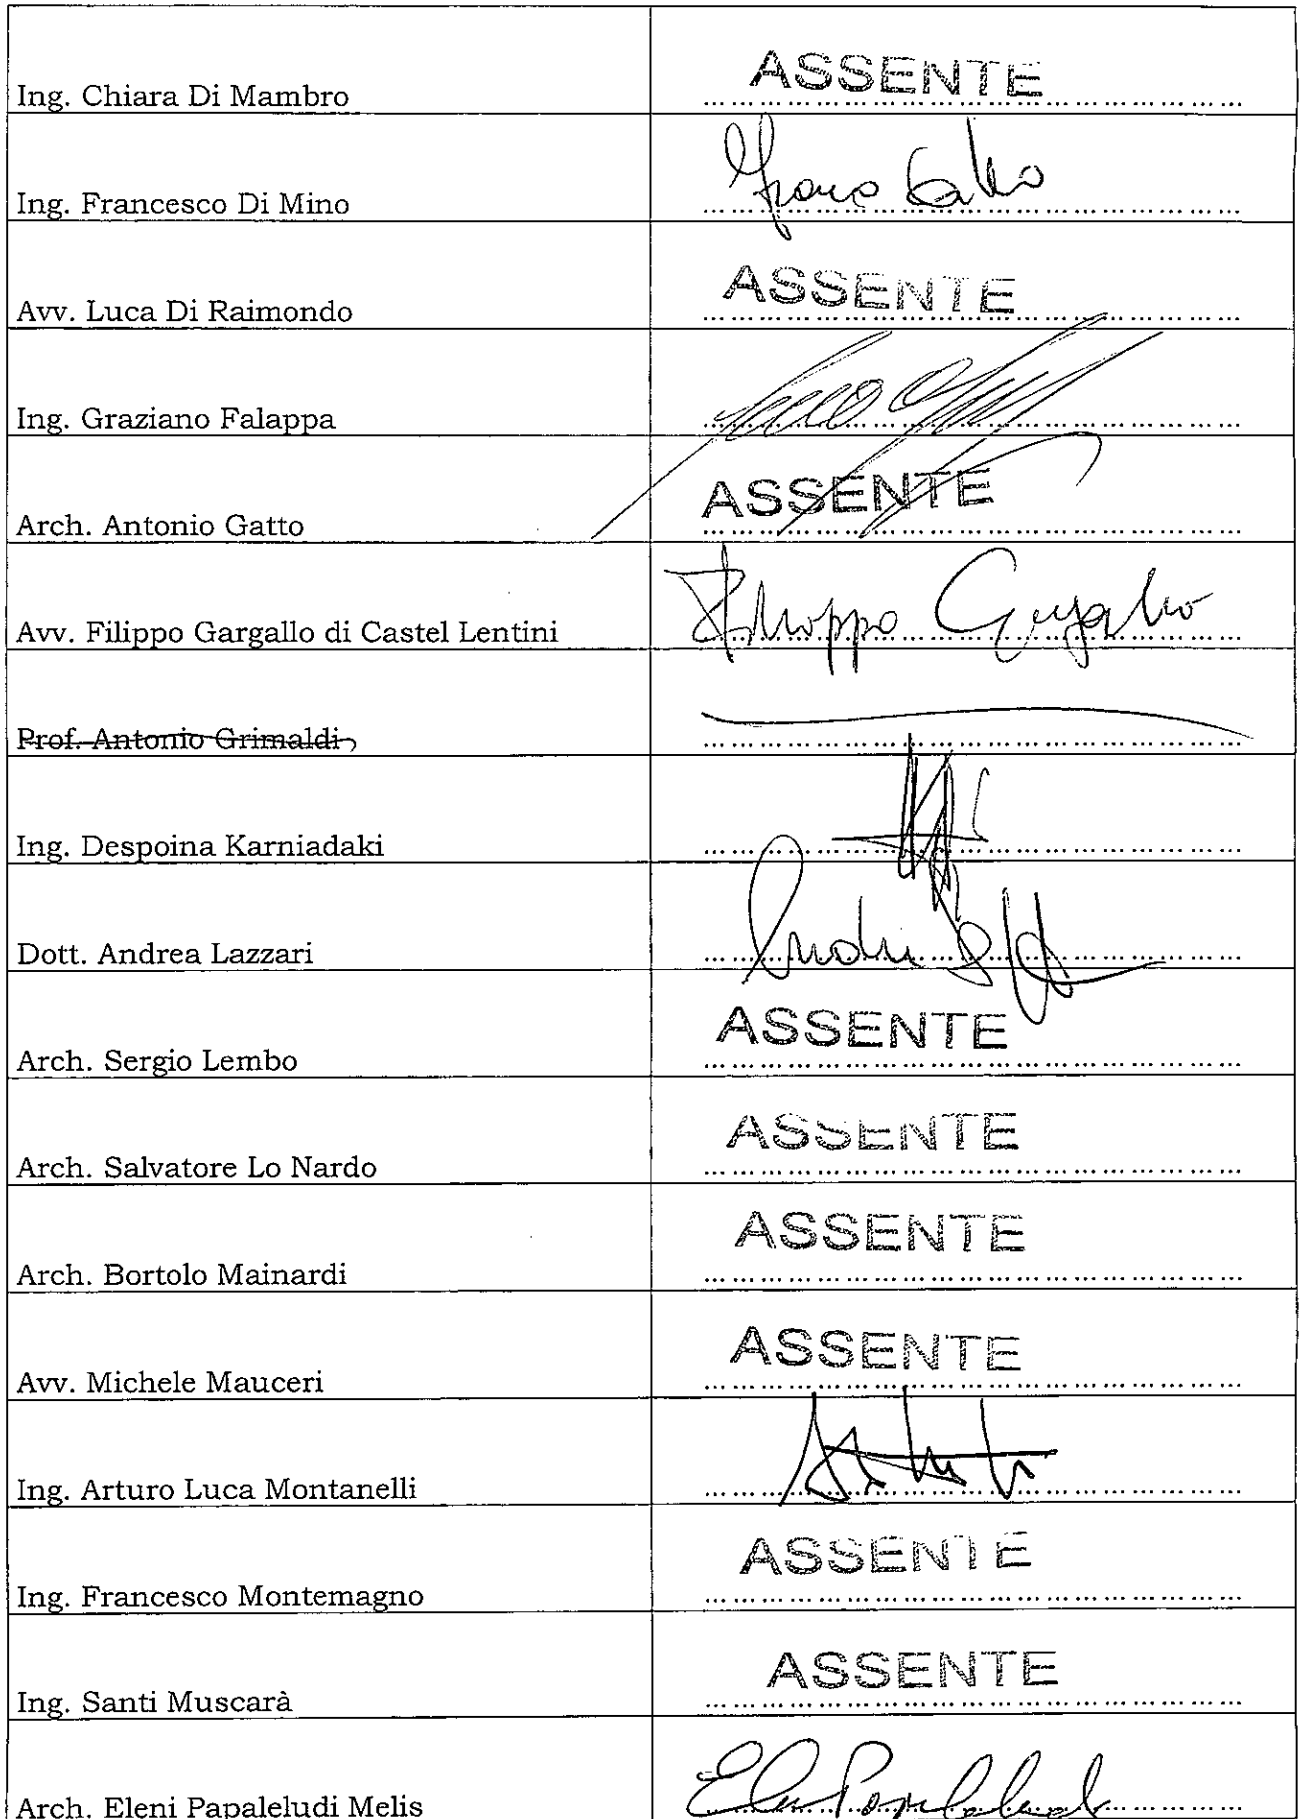 Ing. Chiara Di Mambro ASSENTE
Ing. Francesco Di Mino
Avv. Luca Di Raimondo ASSENTE
Ing. Graziano Falappa
Arch. Antonio Gatto ASSENTE
Avv. Filippo Gargallo di Castel Lentini Filippo Gargallo
Prof. Antonio Grimaldi
Ing. Despoina Karniadaki
Dott. Andrea Lazzari
Arch. Sergio Lembo ASSENTE
Arch. Salvatore Lo Nardo ASSENTE
Arch. Bortolo Mainardi ASSENTE
Avv. Michele Mauceri ASSENTE
Ing. Arturo Luca Montanelli
Ing. Francesco Montemagno ASSENTE
Ing. Santi Muscarà ASSENTE
Arch. Eleni Papaleludi Melis